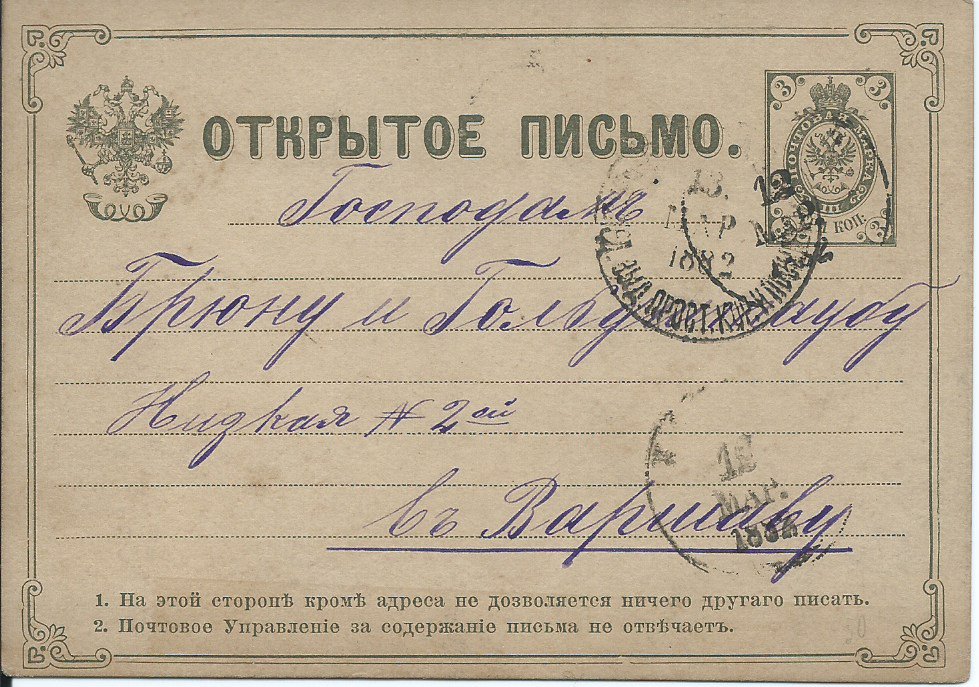 ОТКРЫТОЕ ПИСЬМО.
3 3
ПОЧТОВАЯ МАРКА
КОП.
3 3
Господамъ
13.
МАР
1882
12
МАР.
Брюну и
Нидкая № 2ой
12
МАР.
1882
въ Варшаву
1. На этой сторонѣ кромѣ адреса не дозволяется ничего другаго писать.
2. Почтовое Управленіе за содержаніе письма не отвѣчаетъ.